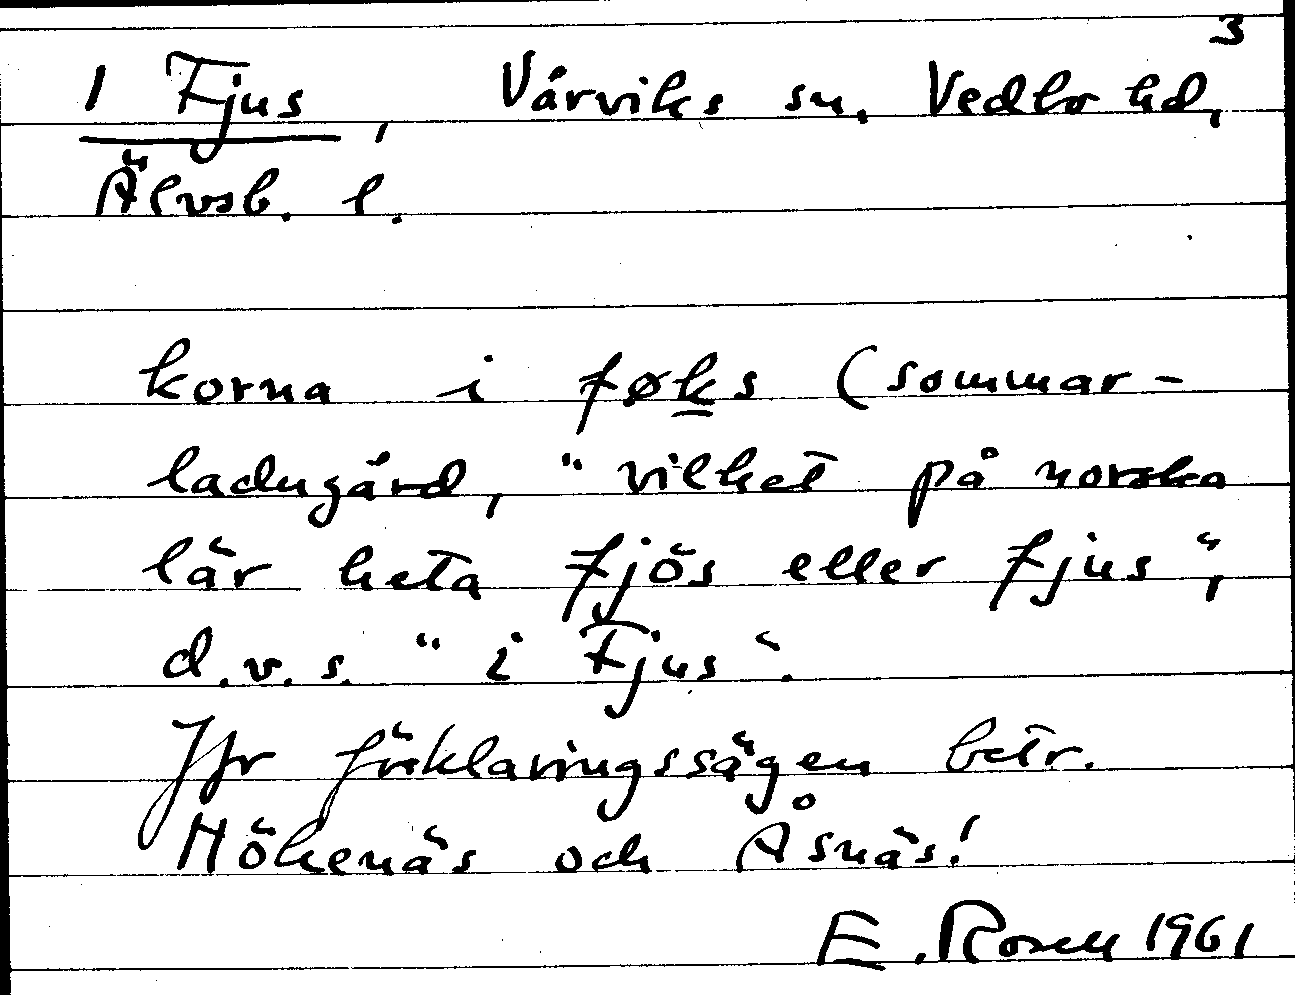 3
1 Fjus, Vårviks sn. Vedbo hd,
Älvsb. l.
korna i føks (sommar-
ladugård, "vilket på norska
lär heta fjös eller fjus",
d.v.s. "i Fjus".
Jfr förklaringssägen betr.
Hökenäs och Åsnäs!
E. Rosell 1961